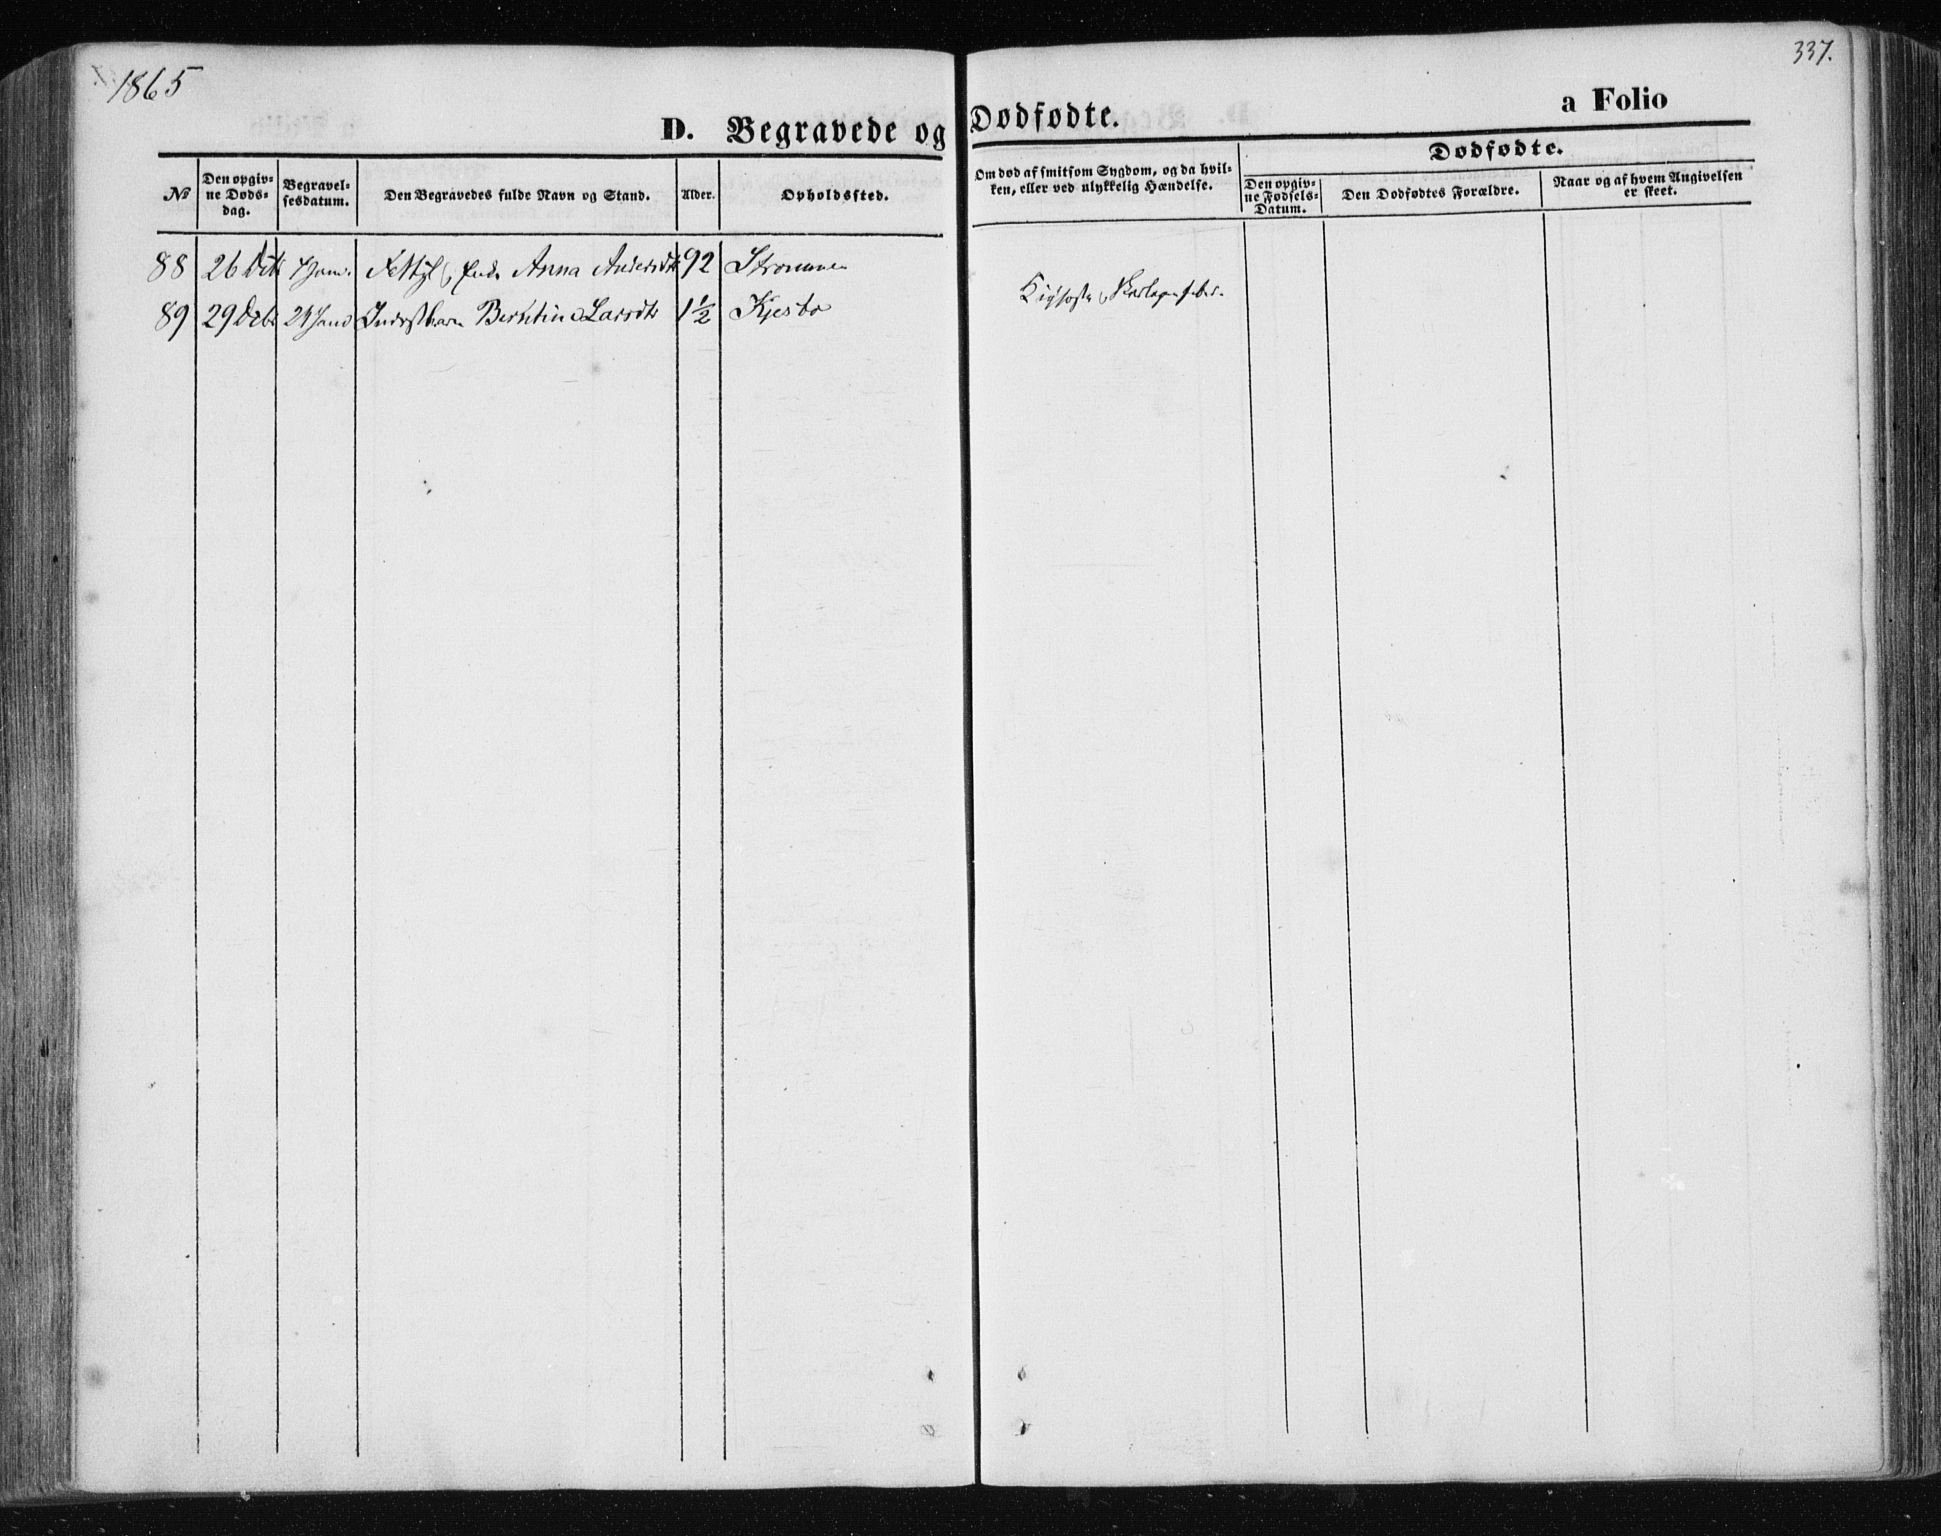 1865
337.
D. Begravede og Dødfødte.
a Folio
№
Den opgiv-
ne Døds-
dag.
Begravel-
sesdatum.
Den Begravedes fulde Navn og Stand.
Alder.
Opholdssted.
Om død af smitsom Sygdom, og da hvil-
ken, eller ved ulykkelig Hændelse.
Dødfødte.
Den opgiv-
ne Fødsels-
Datum.
Den Dødfødtes Forældre.
Naar og af hvem Angivelsen
er skeet.
88 26 Anna 92 Strømmen
89 29 Debr 24 Janu Inderstbarn Berntine Larsdtr 1½ Kjesbo
Kighoste & Skarlagensfeber.